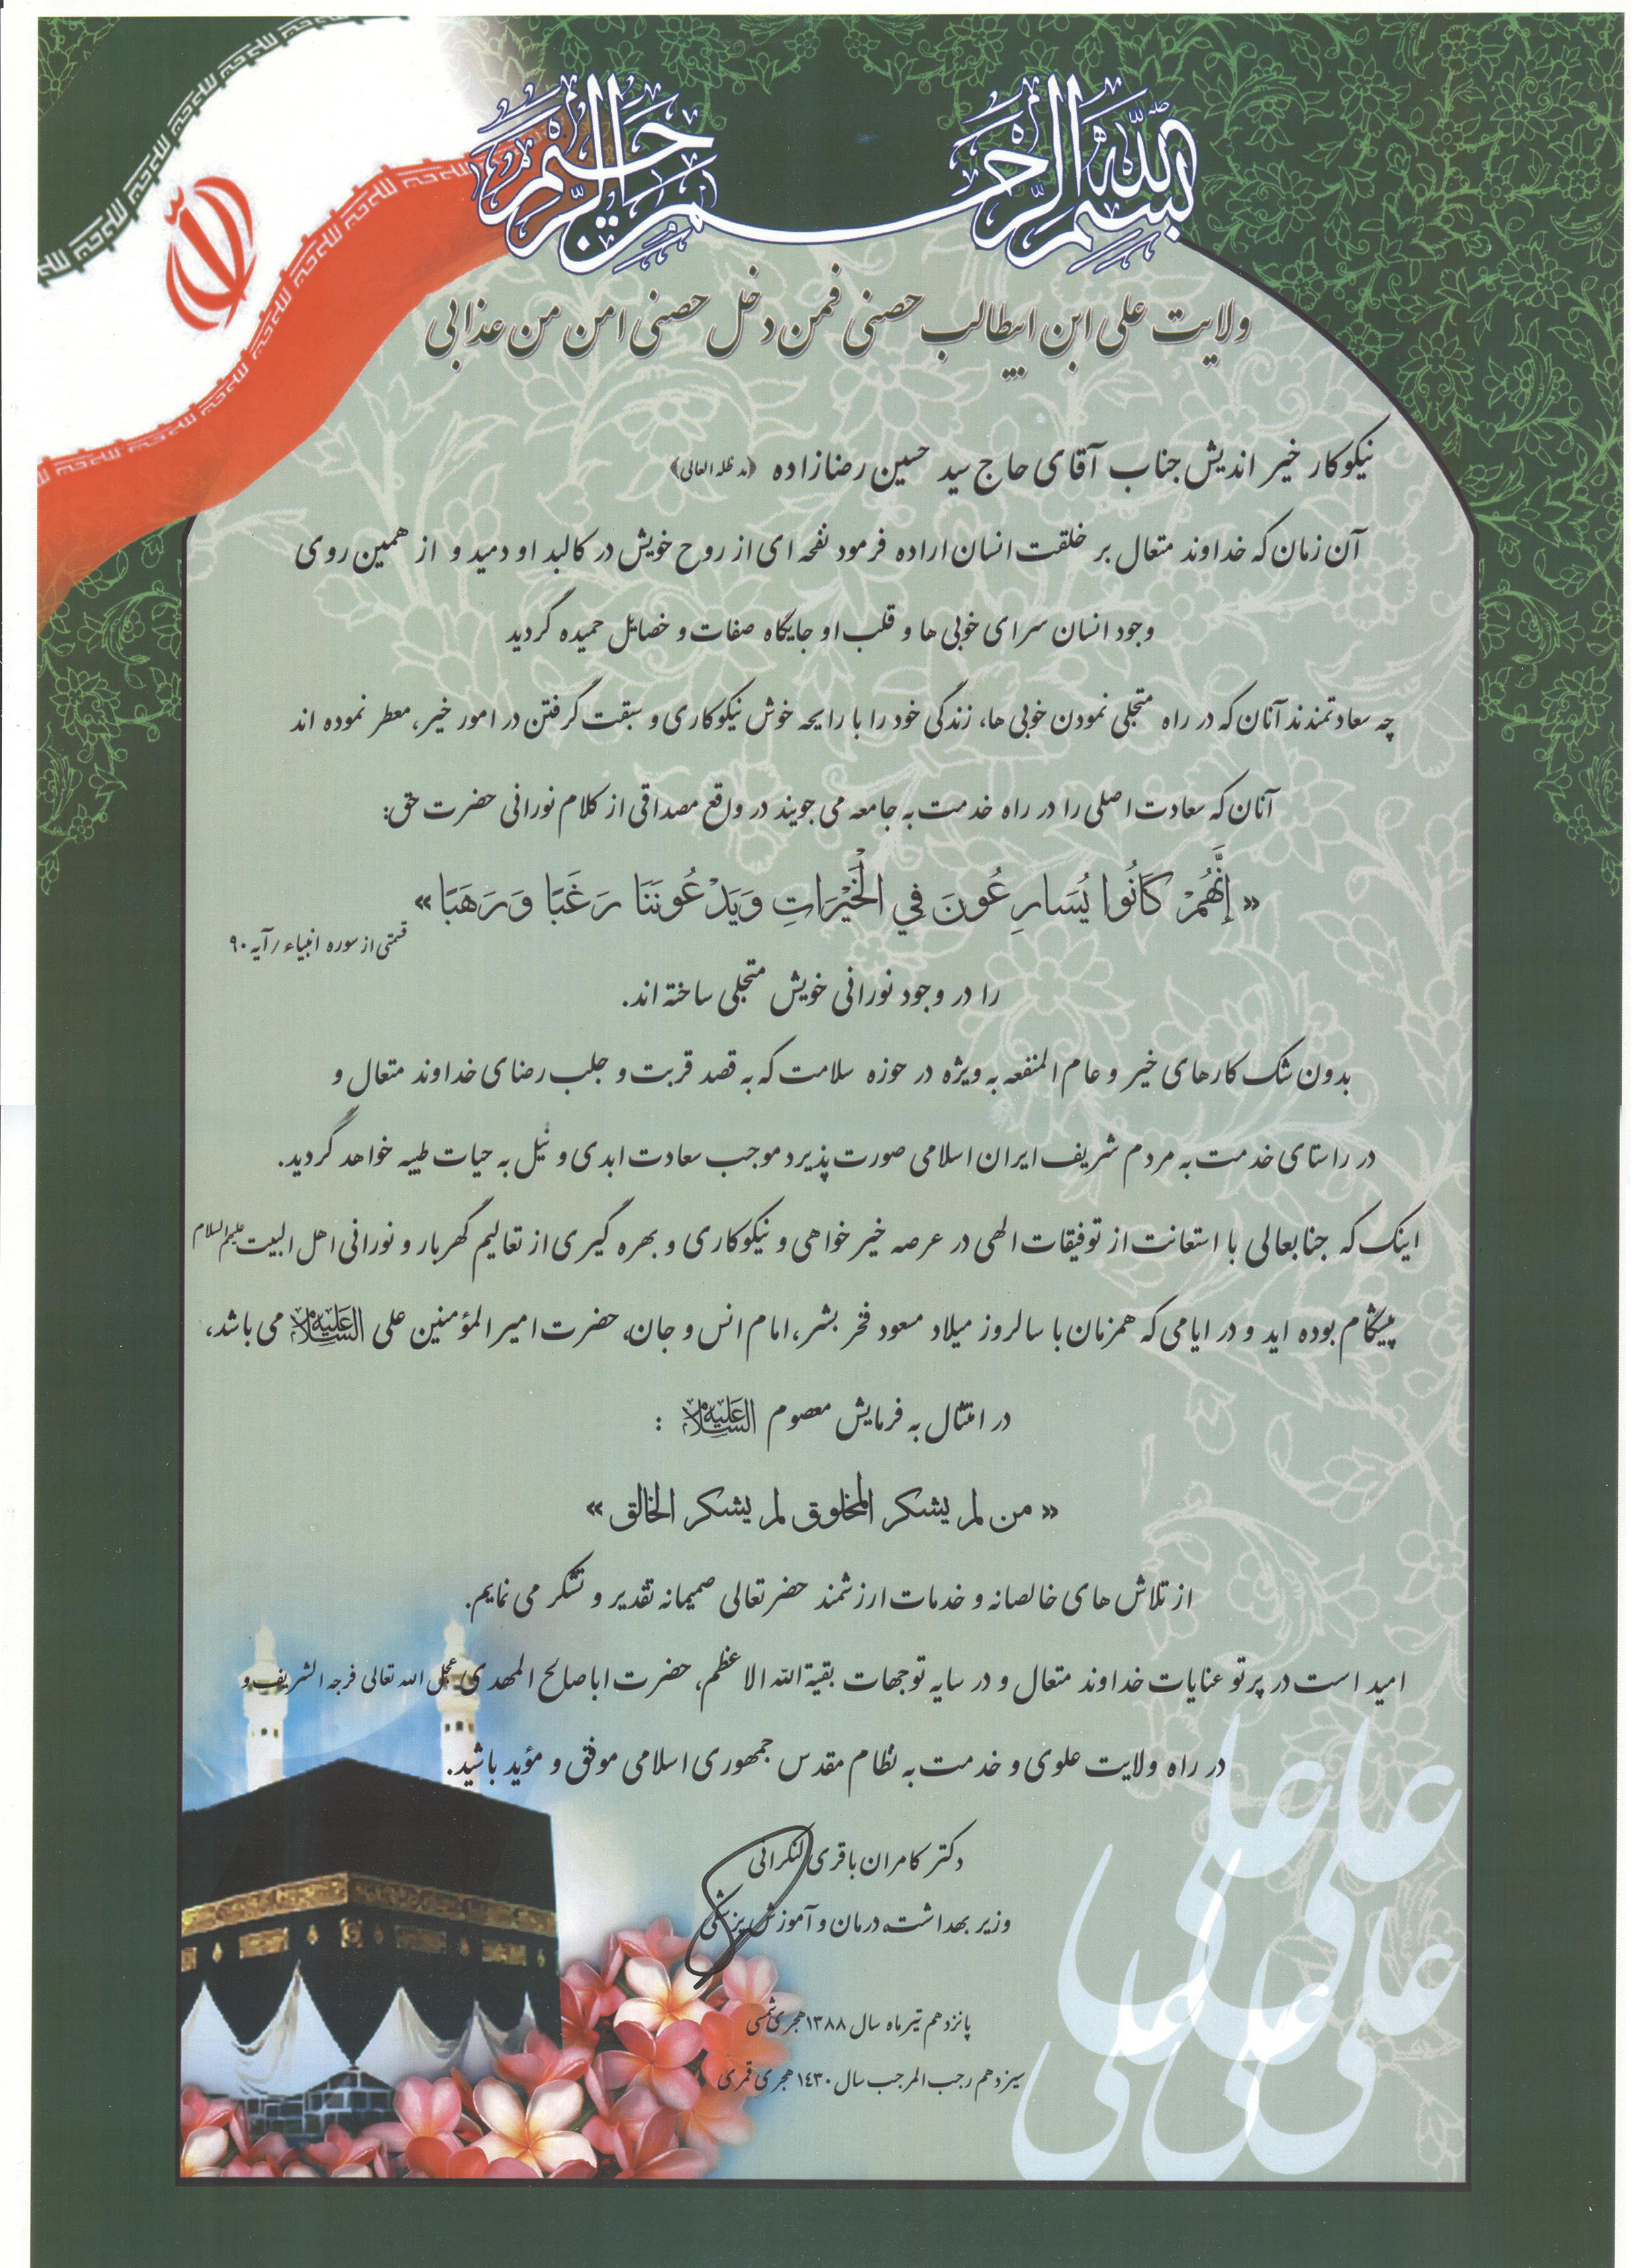 بسم الله الرحمن الرحیم
ولایت علی ابن ابیطالب حصنی فمن دخل حصنی امن من عذابی
نیکوکار خیر اندیش جناب آقای حاج سید حسین رضازاده (مد ظله العالی)
آن زمان که خداوند متعال بر خلقت انسان اراده فرمود نفحه ای از روح خویش در کالبد او دمید و از همین روی
وجود انسان سرای خوبی ها و قلب او جایگاه صفات و خصایل حمیده گردید
چه سعادتمندند آنان که در راه متجلی نمودن خوبی ها، زندگی خود را با رایحه خوش نیکوکاری و سبقت گرفتن در امور خیر، معطر نموده اند
آنان که سعادت اصلی را در راه خدمت به جامعه می جویند در واقع مصداقی از کلام نورانی حضرت حق:
« إِنَّهُمْ كَانُوا يُسَارِعُونَ فِي الْخَيْرَاتِ وَيَدْعُونَنَا رَغَبًا وَرَهَبًا »
قسمتی از سوره انبیاء / آیه ۹۰
را در وجود نورانی خویش متجلی ساخته اند.
بدون شک کارهای خیر و عام المنفعه به ویژه در حوزه سلامت که به قصد قربت و جلب رضای خداوند متعال و
در راستای خدمت به مردم شریف ایران اسلامی صورت پذیرد موجب سعادت ابدی و نیل به حیات طیبه خواهد گردید.
اینک که جنابعالی با استعانت از توفیقات الهی در عرصه خیر خواهی و نیکوکاری و بهره گیری از تعالیم گهربار و نورانی اهل البیت علیهم السلام
پیشگام بوده اید و در ایامی که همزمان با سالروز میلاد مسعود فخر بشر، امام انس و جان، حضرت امیرالمؤمنین علی علیه السلام می باشد،
در امتثال به فرمایش معصوم علیه السلام :
« من لم يشكر المخلوق لم يشكر الخالق »
از تلاش های خالصانه و خدمات ارزشمند حضرتعالی صمیمانه تقدیر و تشکر می نمایم.
امید است در پرتو عنایات خداوند متعال و در سایه توجهات بقیة الله الاعظم، حضرت اباصالح المهدی عجل الله تعالی فرجه الشریف و
در راه ولایت علوی و خدمت به نظام مقدس جمهوری اسلامی موفق و مؤید باشید.
دکتر کامران باقری لنکرانی
وزیر بهداشت، درمان و آموزش پزشکی
پانزدهم تیر ماه سال ۱۳۸۸ هجری شمسی
سیزدهم رجب المرجب سال ۱٤۳۰ هجری قمری
علی علی علی علی علی